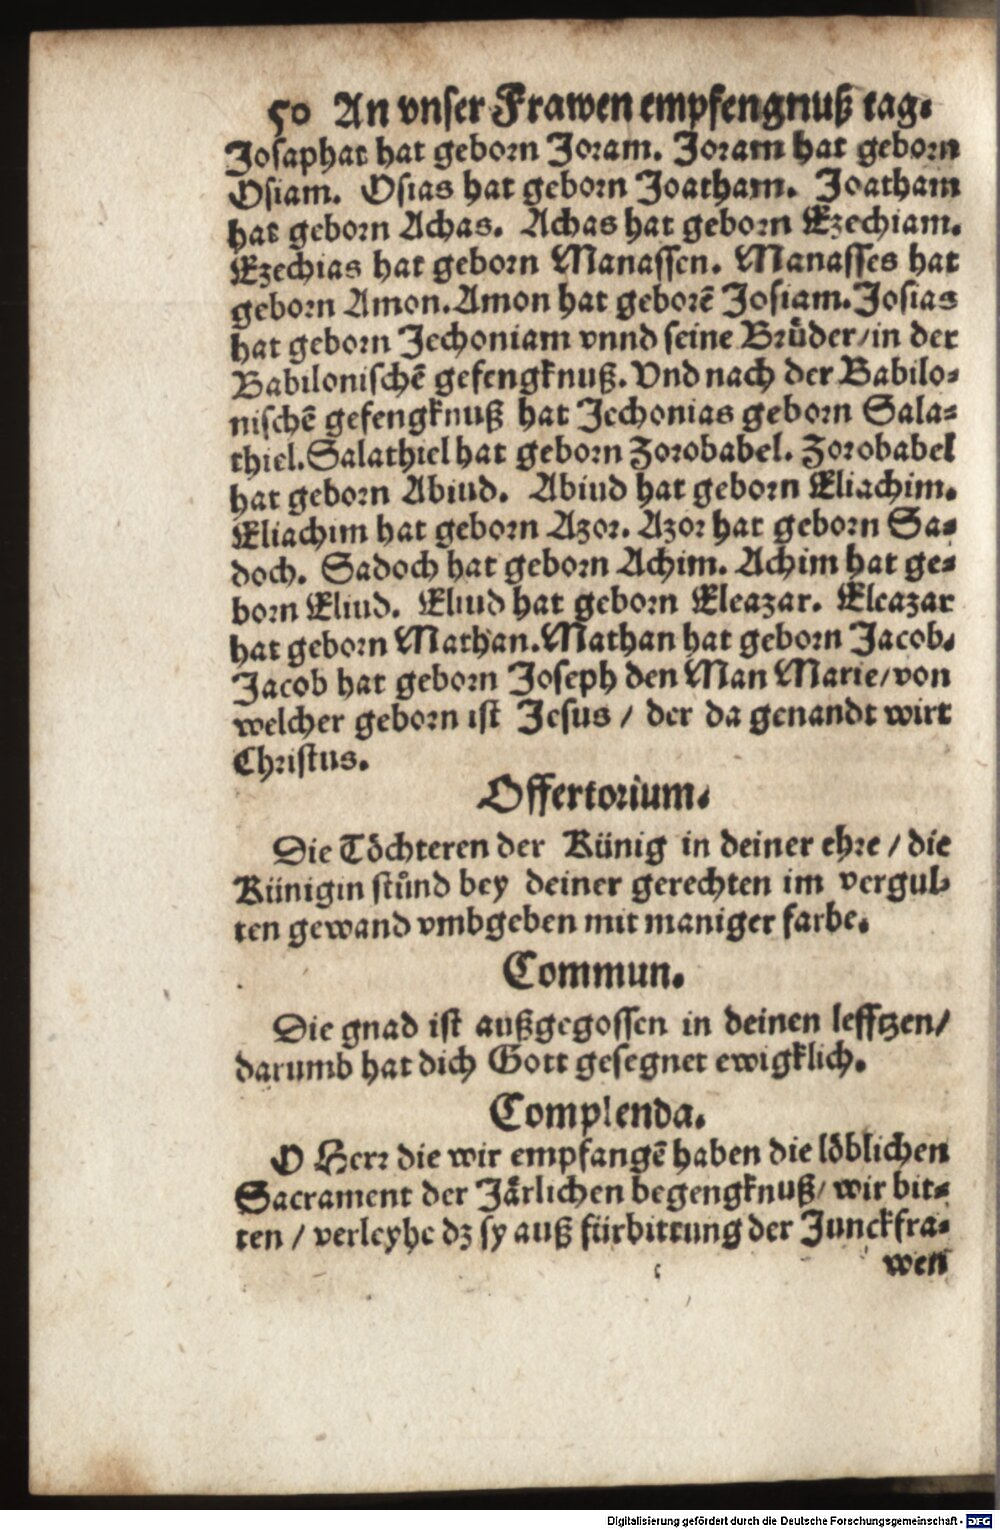 50 An vnser Frawen empfengnuß tag.
Josaphat hat geborn Joram. Joram hat geborn
Osiam. Osias hat geborn Joatham. Joatham
hat geborn Achas. Achas hat geborn Ezechiam.
Ezechias hat geborn Manassen. Manasses hat
geborn Amon. Amon hat geborē Josiam. Josias
hat geborn Jechoniam vnnd seine Brůder/in der
Babilonischē gefengknuß. Vnd nach der Babilo-
nischē gefengknuß hat Jechonias geborn Sala-
thiel. Salathiel hat geborn Zorobabel. Zorobabel
hat geborn Abiud. Abiud hat geborn Eliachim.
Eliachim hat geborn Azor. Azor hat geborn Sa-
doch. Sadoch hat geborn Achim. Achim hat ge-
born Eliud. Eliud hat geborn Eleazar. Eleazar
hat geborn Mathan. Mathan hat geborn Jacob.
Jacob hat geborn Joseph den Man Marie/von
welcher geborn ist Jesus / der da genandt wirt
Christus.
Offertorium.
Die Töchteren der Künig in deiner ehre / die
Künigin stůnd bey deiner gerechten im vergul-
ten gewand vmbgeben mit maniger farbe.
Commun.
Die gnad ist außgegossen in deinen lefftzen/
darumb hat dich Gott gesegnet ewigklich.
Complenda.
O Herr die wir empfangē haben die löblichen
Sacrament der Jårlichen begengknuß/ wir bit-
ten / verleyhe dz sy auß fürbittung der Junckfra-
wen
Digitalisierung gefördert durch die Deutsche Forschungsgemeinschaft - DFG